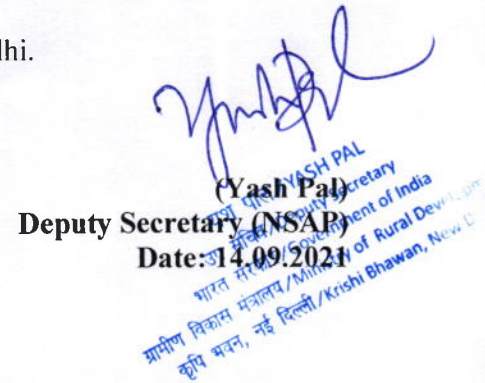 lhi.
(Yash Pal)
Deputy Secretary (NSAP)
Date: 14.09.2021
यश पाल/YASH PAL
उप सचिव/Deputy Secretary
भारत सरकार/Government of India
ग्रामीण विकास मंत्रालय/Ministry of Rural Develop
कृषि भवन, नई दिल्ली/Krishi Bhawan, New D